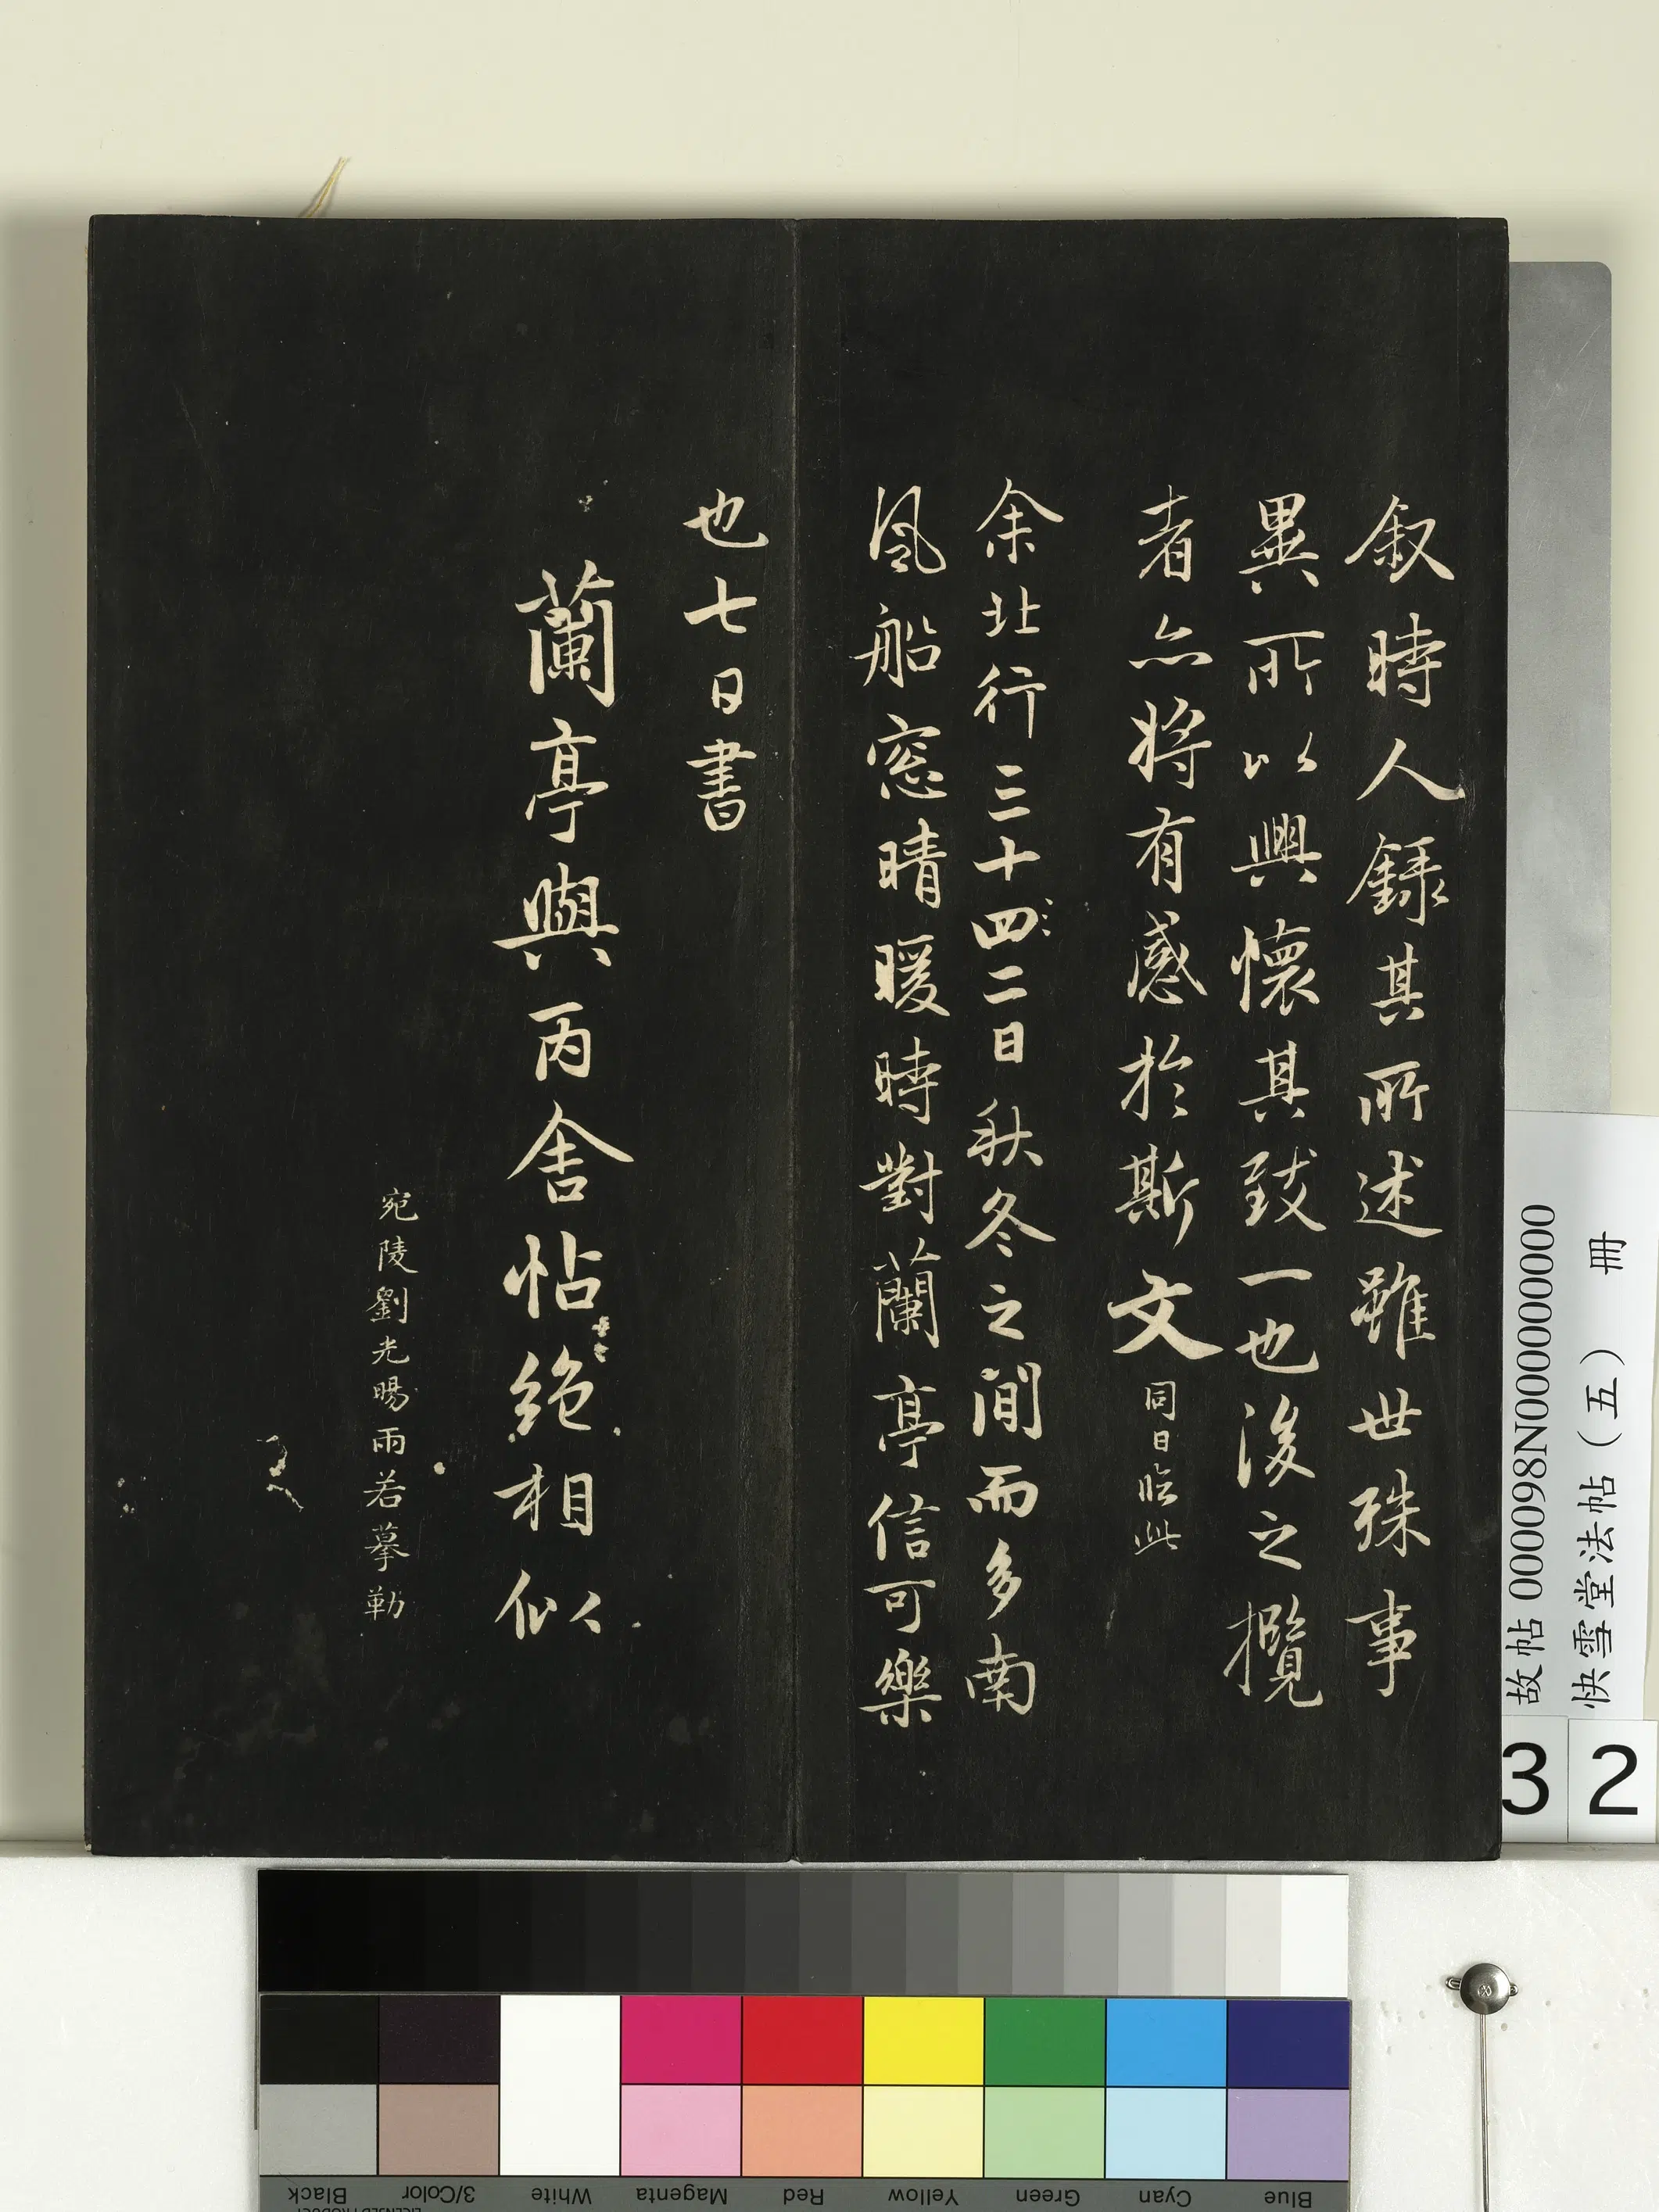 叙時人録其所述雖世殊事
異所以興懷其致一也後之攬
者亦将有感於斯文同日臨此
余北行三十四二日秋冬之間而多南
風船窓晴暖時對蘭亭信可樂
也七日書
蘭亭與丙舍帖絶相似
宛陵劉光暘雨若摹勒
故帖 00098N000000000
快雪堂法帖（五） 冊
3 2
Black 3/Color White Magenta Red Yellow Green Cyan Blue